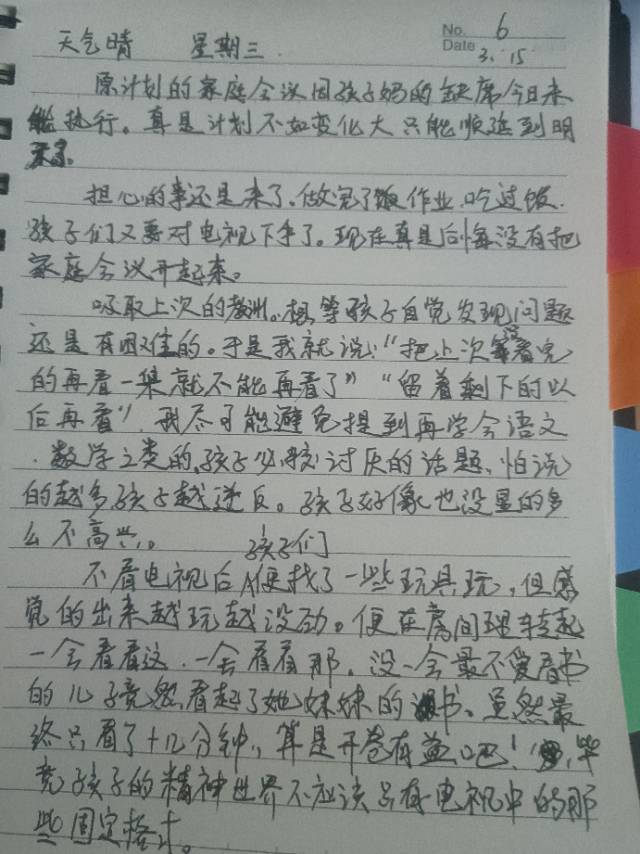 No. 6
Date 3. 15
天气晴 星期三
原计划的家庭会议因孩子妈的缺席今日未
能执行。真是计划不如变化大只能顺延到明
天了。
担心的事还是来了、做完了作业吃过饭.
孩子们又要对电视下手了。现在真是后悔没有把
家庭会议开起来。
吸取上次的教训。想等孩子自觉发现问题
还是有困难的。于是我就说:"把上次没看完
的再看一集就不能再看了""留着剩下的以
后再看"，我尽可能避免提到再学会语文
、数学之类的,孩子讨厌的话题、怕说
的越多孩子越逆反。孩子好像也没显的多
么不高兴。
不看电视后孩子们便找了一些玩具玩，但感
觉的出来越玩越没劲。便在房间里转起
一会看看这、一会看看那。没一会最不爱看书
的儿子竟然看起了她妹妹的书、虽然最
终只看了十几分钟，算是开卷有益吧！毕
竟孩子的精神世界不应该只有电视中的那
些固定格式。